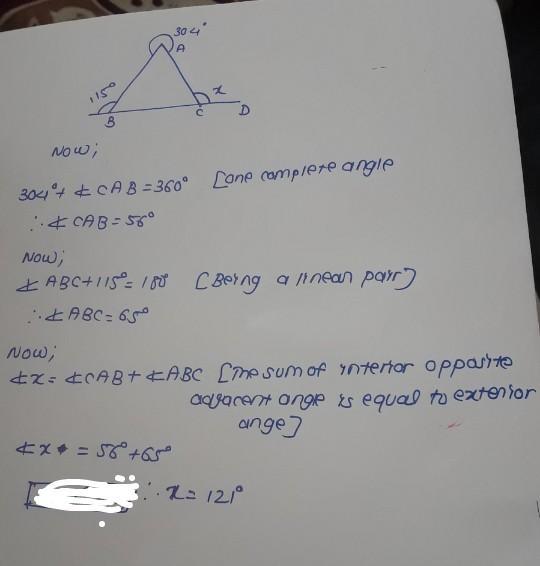 304°
A
115°
x
B
C
D
Now;
304°+ ∡CAB = 360° [one complete angle
∴ ∡CAB = 56°
Now;
∡ABC+115°= 180° [Being a linear pair]
∴ ∡ABC = 65°
Now;
∡x = ∡CAB + ∡ABC [The sum of interior opposite
adjacent angle is equal to exterior
ange]
∡x = 56°+65°
∴ x = 121°